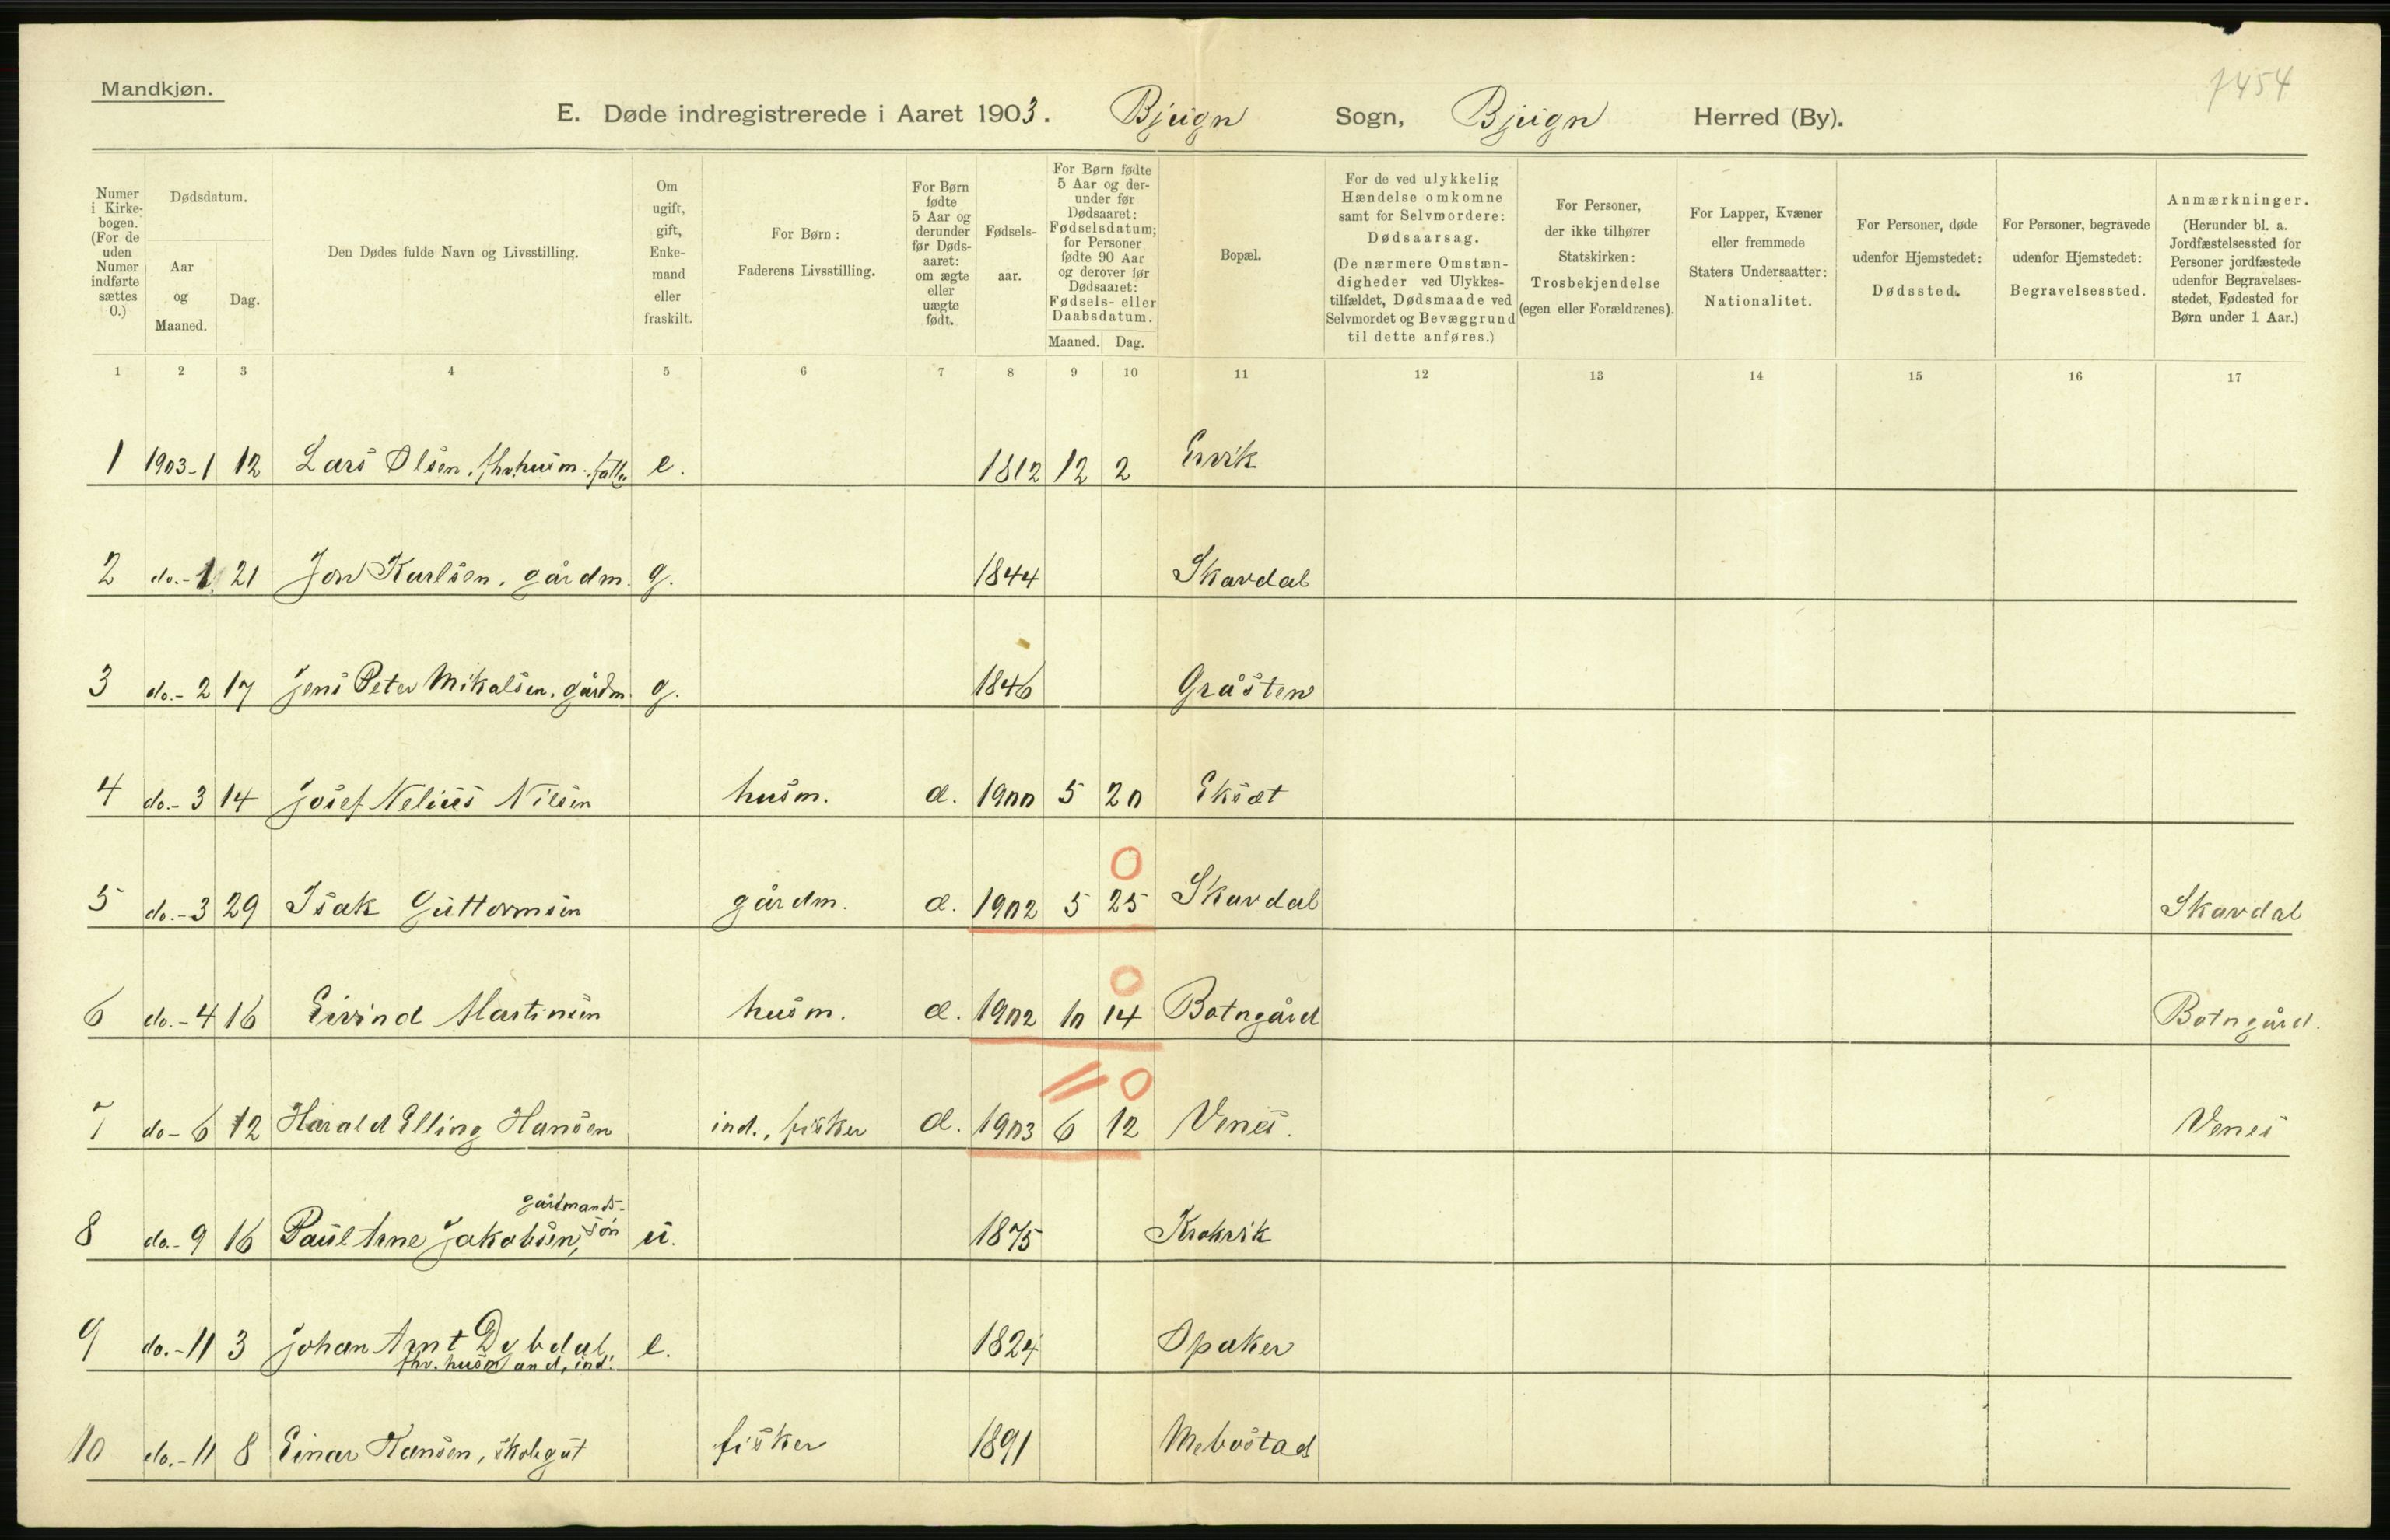 7454
Mandkjøn.
E. Døde indregistrerede i Aaret 1903. Bjugn Sogn, Bjugn Herred (By).
Numer i Kirke-bogen. (For de uden Numer indførte sættes 0.)
Dødsdatum.
Aar og Maaned.
Dag.
Den Dødes fulde Navn og Livsstilling.
Om ugift, gift, Enke-mand eller fraskilt.
For Børn:
Faderens Livsstilling.
For Børn fødte 5 Aar og derunder før Døds-aaret: om ægte eller uægte født.
Fødsels-aar.
For Børn fødte 5 Aar og der-under før Dødsaaret: Fødselsdatum; for Personer fødte 90 Aar og derover før Dødsaaret: Fødsels- eller Daabsdatum.
Maaned. Dag.
Bopæl.
For de ved ulykkelig Hændelse omkomne samt for Selvmordere: Dødsaarsag. (De nærmere Omstæn-digheder ved Ulykkes-tilfældet, Dødsmaade ved Selvmordet og Bevæggrund til dette anføres.)
For Personer, der ikke tilhører Statskirken: Trosbekjendelse (egen eller Forældrenes).
For Lapper, Kvæner eller fremmede Staters Undersaatter: Nationalitet.
For Personer, døde udenfor Hjemstedet: Dødssted.
For Personer, begravede udenfor Hjemstedet: Begravelsessted.
Anmærkninger. (Herunder bl. a. Jordfæstelsessted for Personer jordfæstede udenfor Begravelses-stedet, Fødested for Børn under 1 Aar.)
1 2 3 4 5 6 7 8 9 10 11 12 13 14 15 16 17
1 1903-1 12 Lars Olsen, fhv. husm. e. 1812 12 2 Ervik
2 do.-1 21 Jon Karlsen, gårdm. g. 1844 Skavdal
3 do.-2 17 Jens Peter Mikalsen, gårdm. g. 1846 Gråsten
4 do.-3 14 Josef Nelius Nilsen husm. æ. 1900 5 20 Eksæt
5 do.-3 29 Isak Guttormsen gårdm. æ. 1902 5 25 Skavdal Skavdal
6 do.-4 16 Eivind Martinsen husm. æ. 1902 10 14 Botngård Botngård.
7 do-6 12 Harald Elling Hansen ind., fisker æ. 1903 6 12 Venes. Venes
gårdmands-
8 do.-9 16 Paul Arne Jakobsen, søn u. 1875 Krokvik
9 do.-11 3 Johan Arnt Dybdal e. 1824 Opaker
fhv. husmand, ind.
10 do.-11 8 Einar Hansen, skolegut fisker 1891 Mebostad